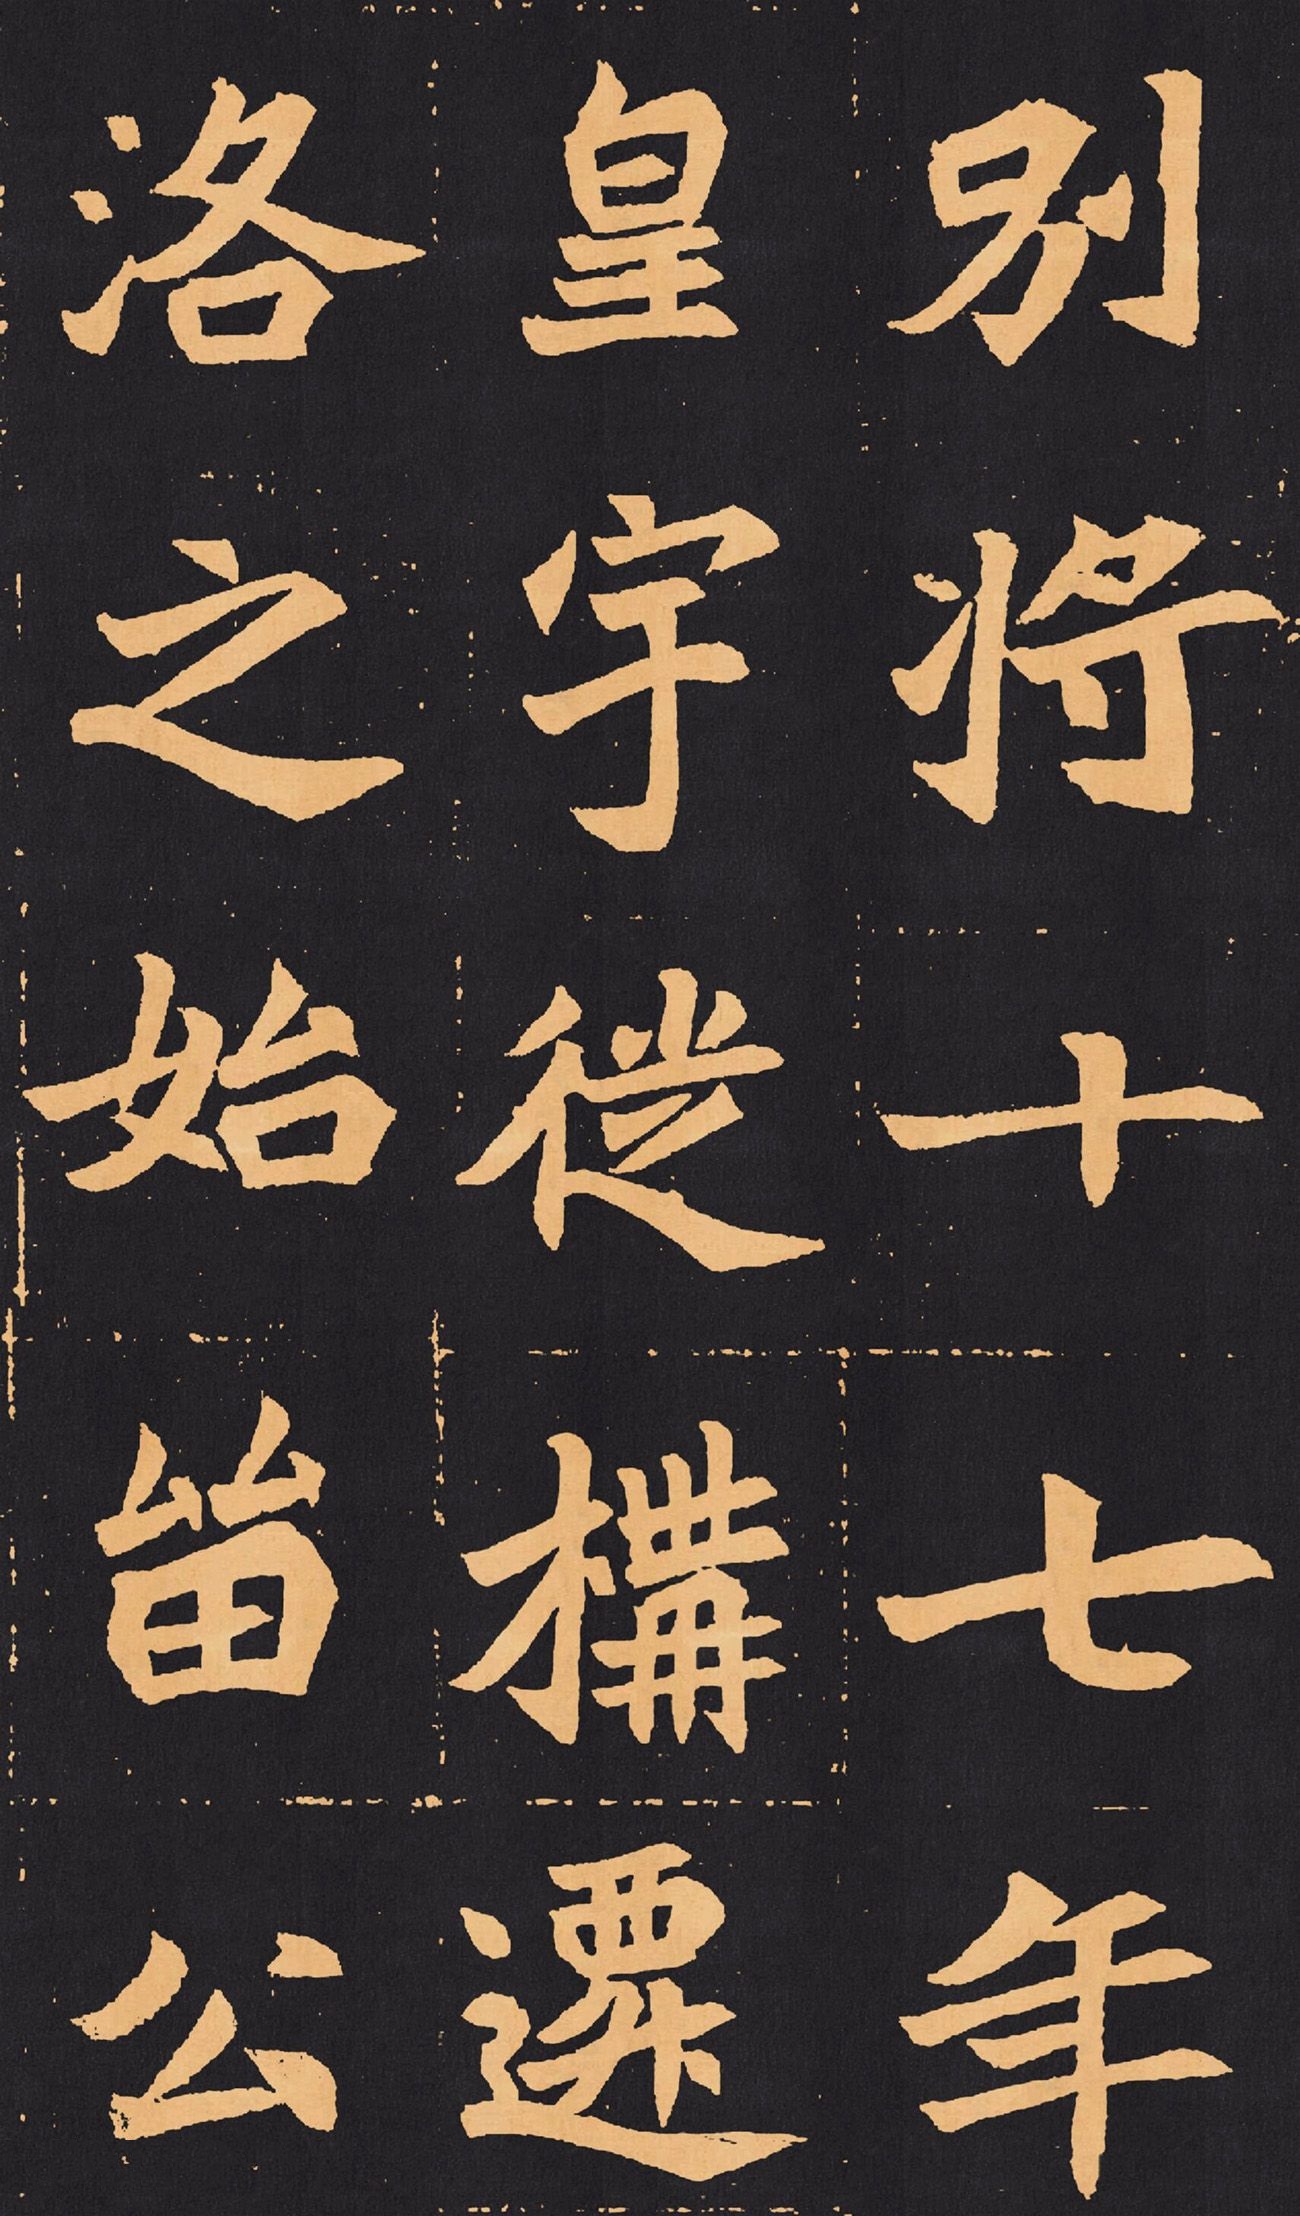 别將十七年
皇宇徙構遷
洛之始𤰕公